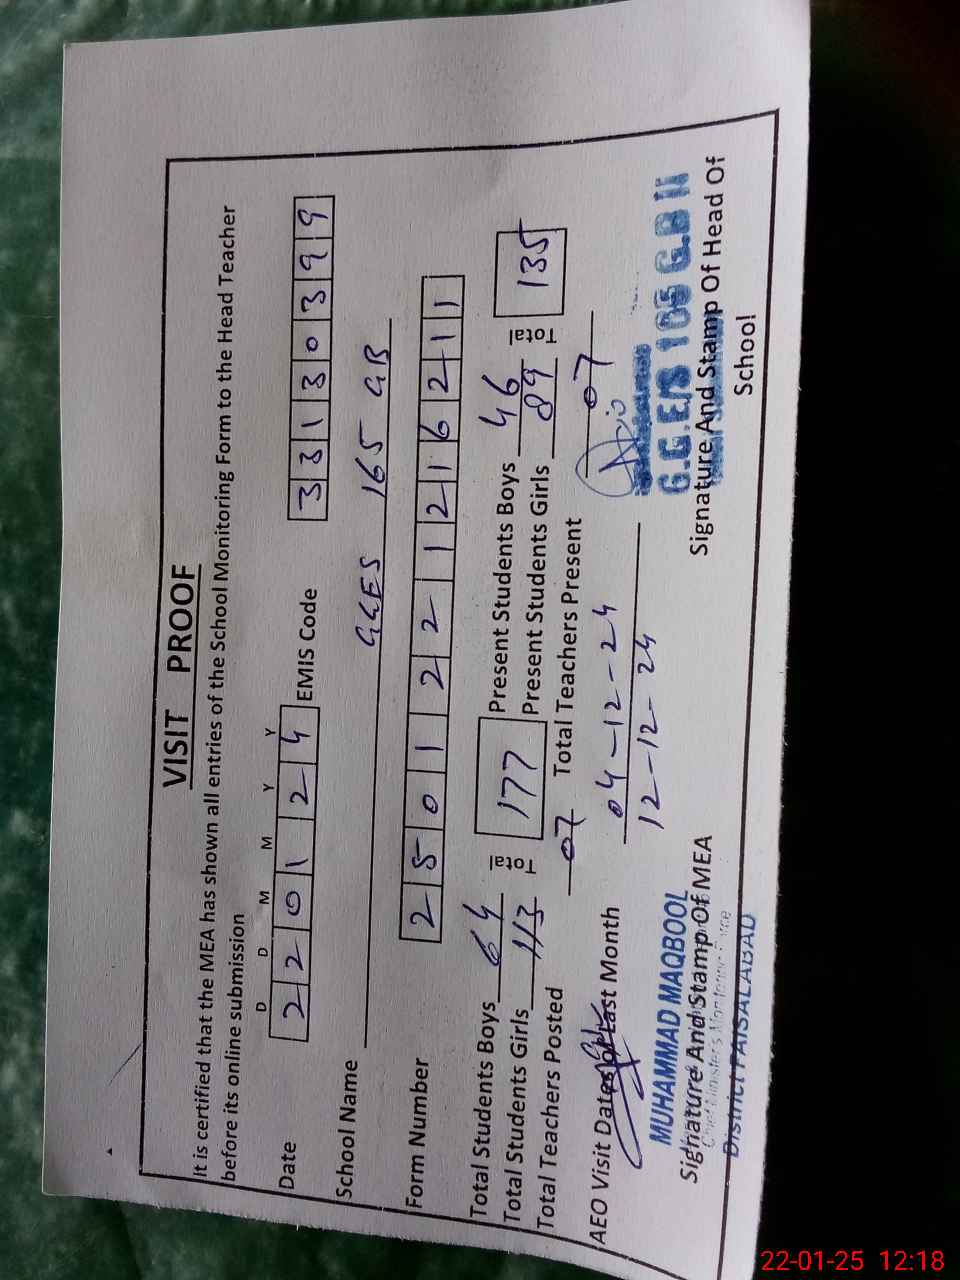 VISIT PROOF
It is certified that the MEA has shown all entries of the School Monitoring Form to the Head Teacher
before its online submission
D D M M Y Y
Date 2 2 0 1 2 4 EMIS Code 3 3 1 3 0 3 9 9
School Name GGES 165 GB
Form Number 2 5 0 1 2 2 1 2 1 6 2 1 1
Total Students Boys 64 Total 177 Present Students Boys 46 Total 135
Total Students Girls 113 Present Students Girls 89
Total Teachers Posted 07 Total Teachers Present 07
AEO Visit Dates of Last Month 04-12-24
12-12-24
MUHAMMAD MAQBOOL
G.G.E/S 165 G.B II
Signature And Stamp Of MEA Signature And Stamp Of Head Of
School
District FAISALABAD
22-01-25 12:18